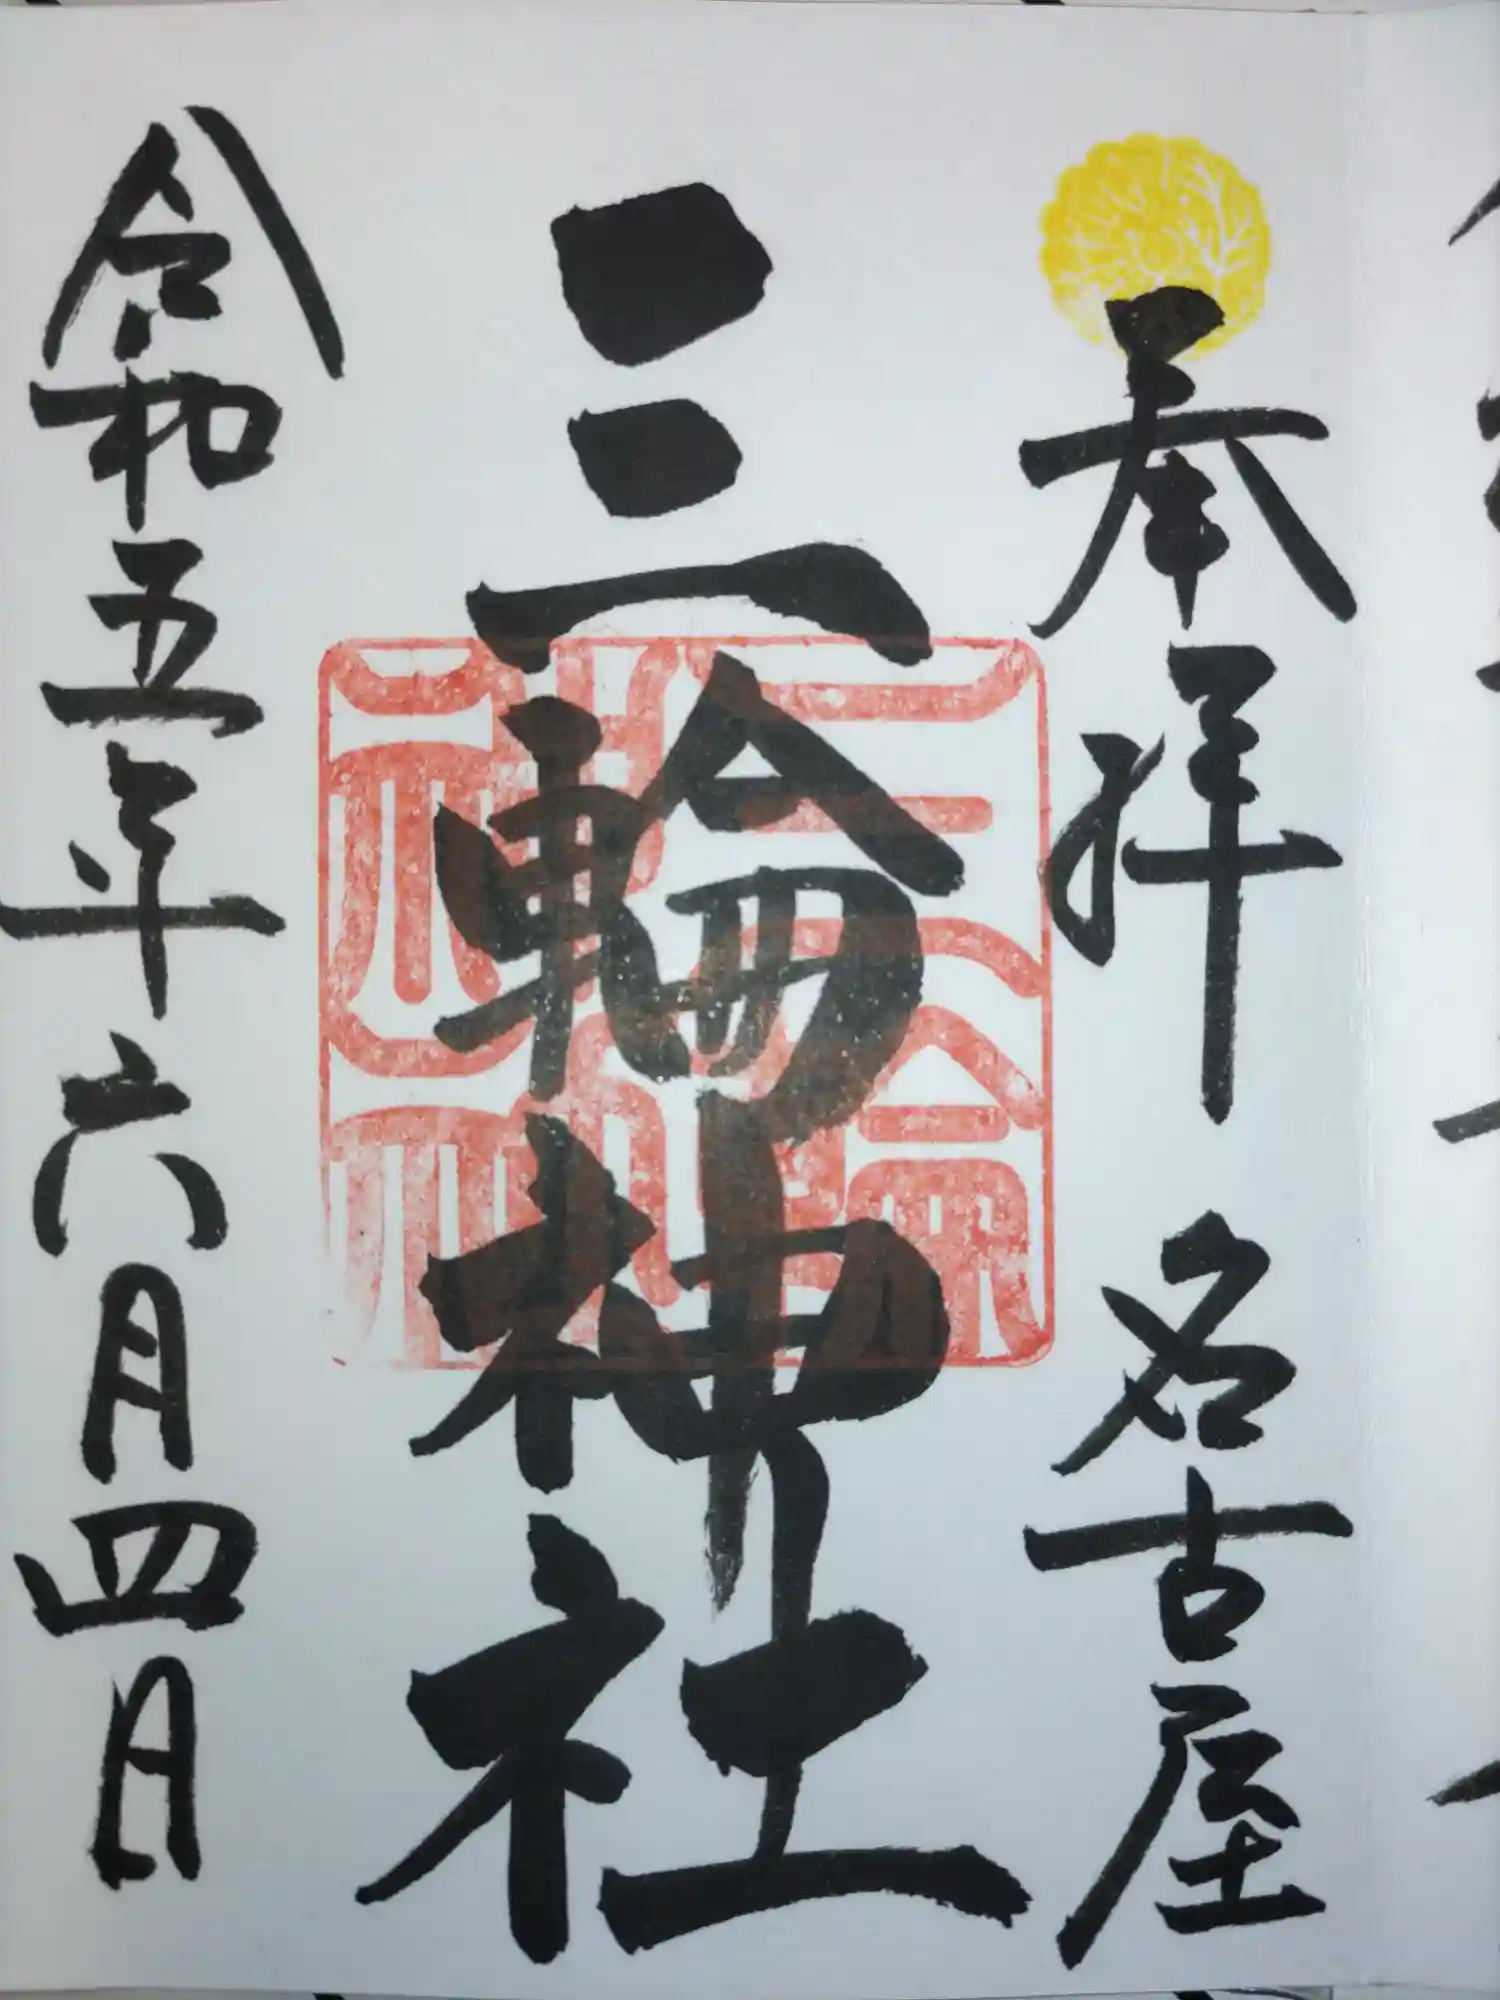 奉拝 名古屋
三輪神社
三輪神社
令和五年六月四日